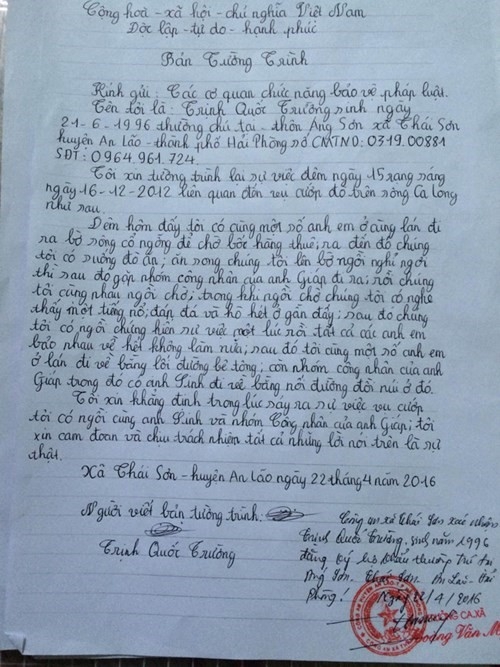 Cộng hoà - xã hội - chủ nghĩa Việt Nam
Độc lập - tự do - hạnh phúc
Bản Tường Trình
Kính gửi: Các cơ quan chức năng bảo vệ pháp luật.
Tên tôi là: Trịnh Quốc Trường sinh ngày
21-6-1996 thường chú tại - thôn Áng Sơn xã Thái Sơn
huyện An Lão - thành phố Hải Phòng số CMTND: 0319.00881
SĐT: 0964.961.724.
Tôi xin tường trình lại sự việc đêm ngày 15 rạng sáng
ngày 16-12-2012 liên quan đến vụ cướp đò trên sông Ca Long
như sau.
Đêm hôm đấy tôi có cùng một số anh em ở cùng lán đi
ra bờ sông cổ ngỗng để chờ bốc hàng thuê, ra đến đó chúng
tôi có xuống đò ăn; ăn song chúng tôi lên bờ ngồi nghỉ ngơi
thì sau đó gặp nhóm công nhân của anh Giáp đi ra; rồi chúng
tôi cùng nhau ngồi chờ; trong khi ngồi chờ chúng tôi có nghe
thấy một tiếng nổ; đấn đá và hô hét ở gần đấy; sau đó chúng
tôi có ngồi chứng kiến sự việc một lúc rồi tất cả các anh em
bảo nhau về hết không làm nữa; sau đó tôi cùng một số anh em
ở lán đi về bằng lối đường bê tông; còn nhóm công nhân của anh
Giáp trong đó có anh Sinh đi về bằng nối đường đồi núi ở đó.
Tôi xin khẳng định trong lúc sảy ra sự việc vụ cướp
tôi có ngồi cùng anh Sinh và nhóm Công nhân của anh Giáp; tôi
xin cam đoan và chịu trách nhiệm tất cả những lời nói trên là sự
thật.
Xã Thái Sơn - huyện An Lão ngày 22 tháng 4 năm 2016
Người viết bản tường trình.
Trịnh Quốc Trường
Công an xã Thái Sơn xác nhận
Trịnh Quốc Trường, sinh năm 1996
đăng ký hộ khẩu thường Trú tại
Áng Sơn, Thái Sơn, An Lão - Hải
Phòng! Ngày 22/4/2016
CÔNG AN XÃ
Hoàng Văn